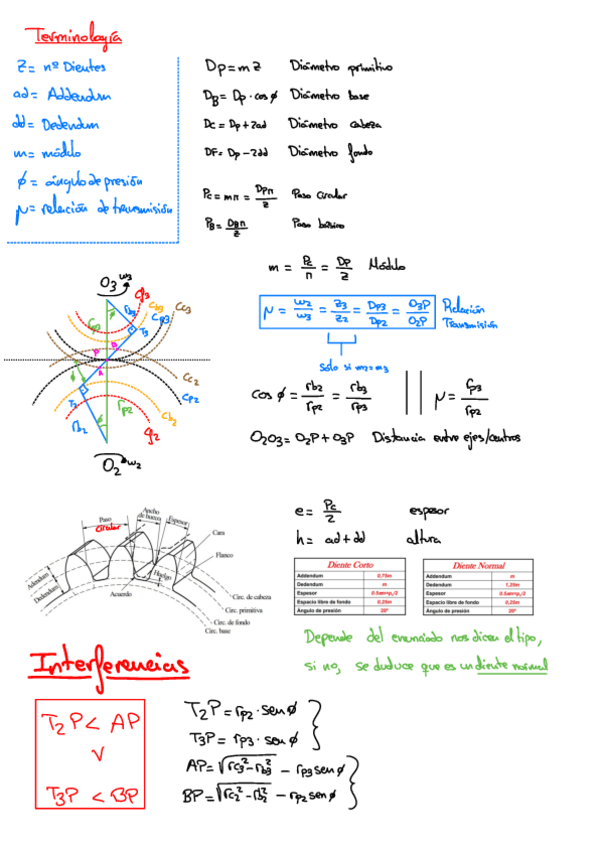 Terminología
Z = nº Dientes
ad = Addendum
dd = Dedendum
m = módulo
ϕ = ángulo de presión
μ = relación de transmisión
Dp = m z Diámetro primitivo
DB = Dp · cos ϕ Diámetro base
Dc = Dp + 2ad Diámetro cabeza
DF = Dp - 2dd Diámetro fondo
Pc = mπ = Dpπ / z Paso circular
PB = DBπ / z Paso básico
m = Pc / π = Dp / z Módulo
μ = ω2 / ω3 = z3 / z2 = Dp3 / Dp2 = O3P / O2P Relación Transmisión
solo si m2=m3
cos ϕ = rb2 / rp2 = rb3 / rp3 || μ = rp3 / rp2
O2O3 = O2P + O3P Distancia entre ejes/centros
O3 ω3
rp3
rb3
T3
Cf3
Cb3
Cp3
Cc3
P
B
A
ϕ
Cc2
Cp2
Cb2
Cf2
T2
rb2
rp2
ϕ
O2 ω2
Paso
circular
Ancho
de hueco
Espesor
Cara
Flanco
Addendum
Dedendum
Huelgo
Acuerdo
Circ. de cabeza
Circ. primitiva
Circ. de fondo
Circ. base
e = Pc / 2 espesor
h = ad + dd altura
Diente Corto
Addendum 0,75m
Dedendum m
Espesor 0.5πm=pc/2
Espacio libre de fondo 0,25m
Ángulo de presión 20º
Diente Normal
Addendum m
Dedendum 1,25m
Espesor 0.5πm=pc/2
Espacio libre de fondo 0,25m
Ángulo de presión 20º
Depende del enunciado nos dicen el tipo,
si no, se deduce que es un diente normal
Interferencias
T2P < AP
v
T3P < BP
T2P = rp2 · sen ϕ
T3P = rp3 · sen ϕ
AP = √(rc3² - rb3²) - rp3 sen ϕ
BP = √(rc2² - rb2²) - rp2 sen ϕ